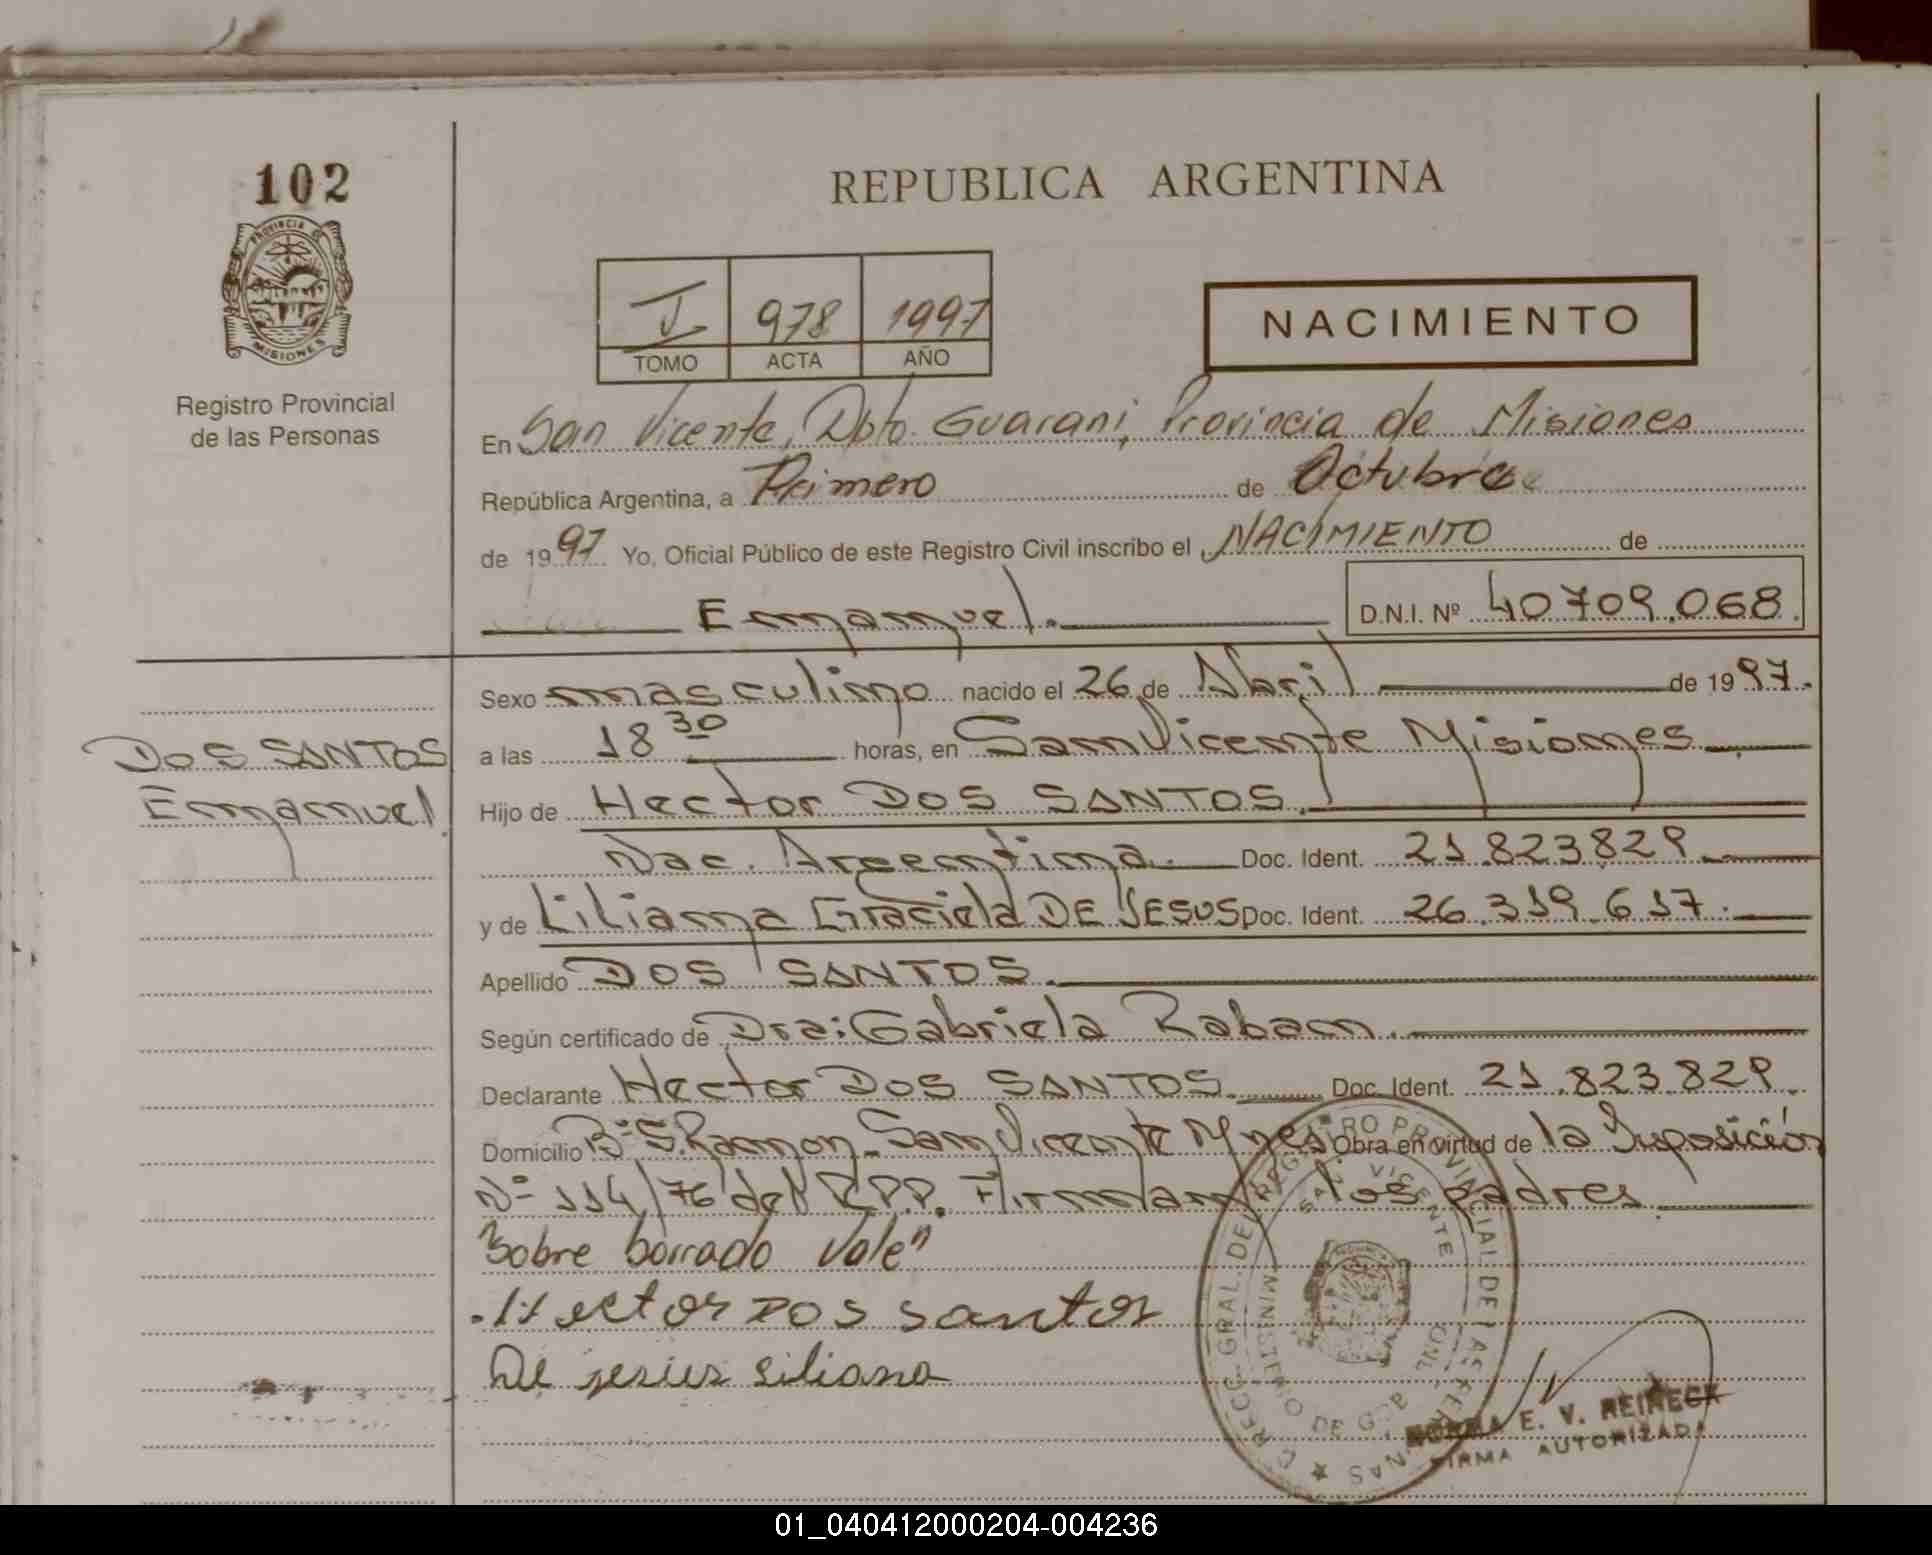 102
PROVINCIA D
MISIONES
Registro Provincial
de las Personas
REPUBLICA ARGENTINA
I 978 1997
TOMO ACTA AÑO
NACIMIENTO
En San Vicente, Dpto. Guarani, Provincia de Misiones
República Argentina, a Primero de Octubre
de 1997 Yo, Oficial Público de este Registro Civil inscribo el NACIMIENTO de
Emanuel. D.N.I. Nº 40709.068.
Sexo masculino nacido el 26 de Abril de 1997.
DOS SANTOS
Emanuel.
a las 18 30 horas, en San Vicente Misiones
Hijo de Hector DOS SANTOS.
Nac. Argentina. Doc. Ident. 21.823829
y de Liliana Graciela DE JESUS Doc. Ident. 26.319.617.
Apellido DOS SANTOS.
Según certificado de Dra: Gabriela Raban.
Declarante Hector DOS SANTOS. Doc. Ident. 21.823.829.
Domicilio Bº S. Ramon San Vicente Mnes Obra en virtud de la Disposición
Nº 114/76 del R.P.P. Firman los padres
"Sobre borrado Vale"
Hector DOS santos
De jesus Liliana
DIRECC. GRAL. DEL REGISTRO PROVINCIAL DE LAS PERSONAS
SAN VICENTE
MINISTERIO DE GOB.
NORMA E. V. REINECK
FIRMA AUTORIZADA
01_040412000204-004236